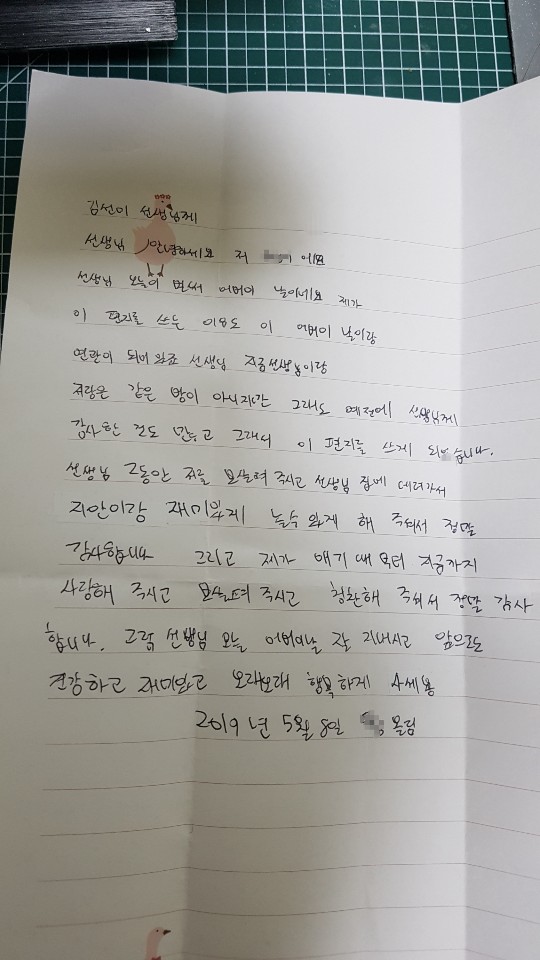 김선이 선생님께
선생님 안녕하세요 저 이에요
선생님 오늘이 벌써 어버이 날이네요 제가
이 편지를 쓰는 이유도 이 어버이 날이랑
연관이 되어 있죠 선생님 지금선생님이랑
저랑은 같은 방이 아니지만 그래도 예전에 선생님께
감사한 것도 많고 그래서 이 편지를 쓰게 되었습니다.
선생님 그동안 저를 보살펴 주시고 선생님 집에 데려가서
지안이랑 재미있게 놀수 있게 해 주셔서 정말
감사합니다 그리고 제가 애기 때 부터 지금까지
사랑해 주시고 보살펴 주시고 칭찬해 주셔서 정말 감사
합니다. 그럼 선생님 오늘 어버이날 잘 지내시고 앞으로도
건강하고 재미있고 오래오래 행복하게 사세용
2019년 5월 8일 올림